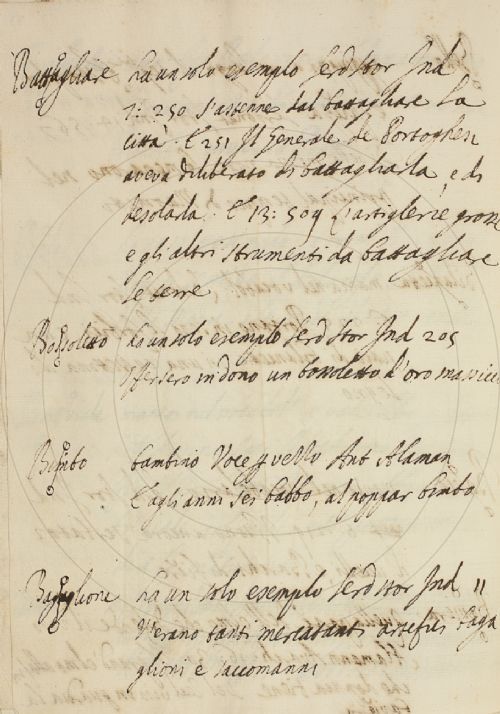 Battagliare ha un solo esempio Serd Stor Ind
7: 250 s'astenne dal battagliare la
città. E 251 Il Generale de Portoghesi
aveva diliberato di battagliarla, e di
desolarla. E 13: 509 l'artiglerie grosse
e gli altri strumenti da battagliare
le terre
Bossoletto ha un solo esempio Serd Stor Ind 205
offersero in dono un bossoletto d'oro massiccio
Bimbo bambino Voce Ant Alaman
E agli anni sei babbo, al poppar bimbo
Bagaglione ha un solo esempio Serd Stor Ind 11
Verano tanti mercatanti artefici baga
glioni e saccomanni